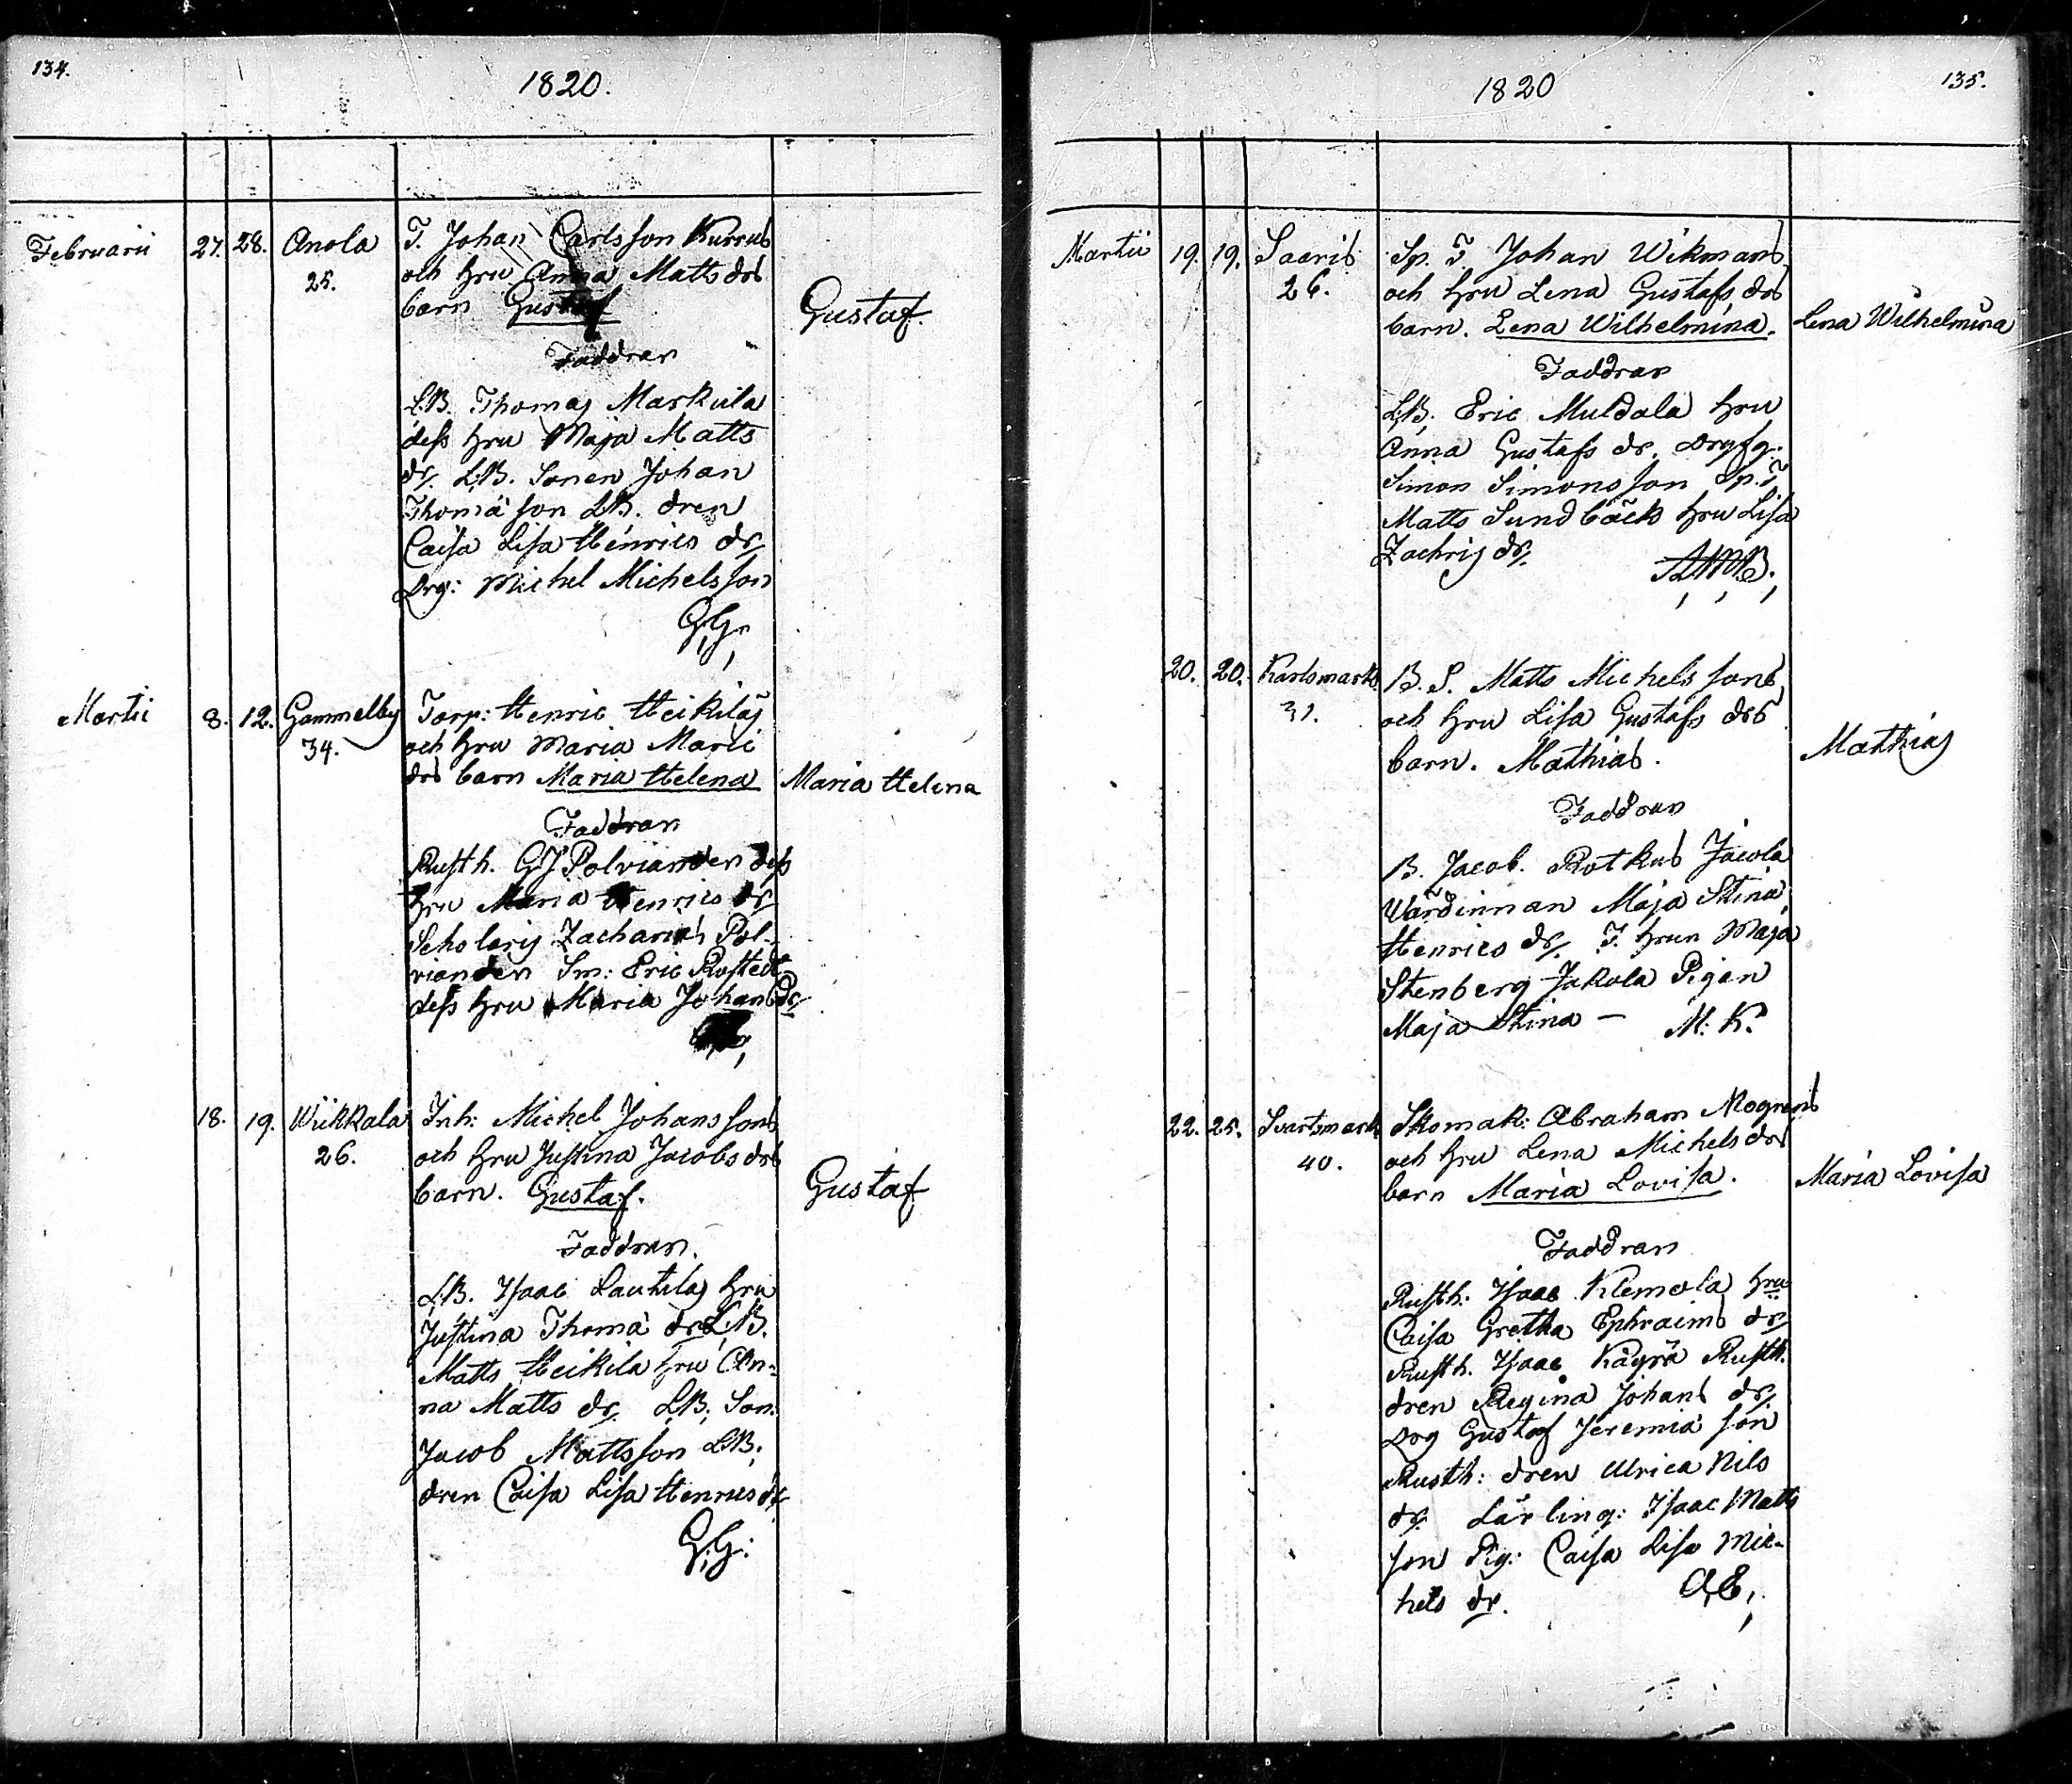 134.
1820.
Februarii 27. 28. Anola T. Johan Carlsson Kurrus
25. och hru Anna Matts drs
barn Gustaf Gustaf.
Faddran
LB. Thomas Markula
dess hru Maja Matts
dr. LB. Sonen Johan
Thomæ son LB. dren
Caisa Lisa Henrics dr,
Drg: Michel Michelsson
G.G.
Martii 8. 12. Gammelby Torp: Henric Heikiläs
34. och hru Maria Marci
drs barn Maria Helena Maria Helena
Faddran
Rusth. GJ Polvianden dess
hru Maria Henrics dr,
Scholaris Zacharias Pol-
vianden Sm: Eric Rostedt
dess hru Maria Johans dr,
18. 19. Wiikkala Inh: Michel Johanssons
26. och hru Justina Jacobs drs
barn. Gustaf. Gustaf
Faddran.
LB. Isaac Lautilas hru
Justina Thomæ dr LB.
Matts Heikilä hru An-
na Matts dr. LB, Son:
Jacob Mattsson LB:
dren Caisa Lisa Henrics dr
G.G:
135.
1820
Martii 19. 19. Saaris Sp. T Johan Wikmans
26. och hru Lena Gustafs drs
barn. Lena Wilhelmina. Lena Wilhelmina
Faddran
LB. Eric Muldala hru
Anna Gustafs dr. Drgsg:
Simon Simonsson Sp. T,
Matts Sundbäcks hru Lisa
Zachris dr.
20. 20. Karlsmark B. S. Matts Michelssons
31. och hru Lisa Gustafs drs
barn. Mathias. Mathias
Faddran
B. Jacob Rotkus Jacola
Värdinnan Maja Stina
Henrics dr, T. hrun Maja
Stenberg Jakola Pigan
Maja Stina — M. K.
22. 25. Svartsmark Skomak: Abraham Mogrens
40. och hru Lena Michels drs
barn Maria Lovisa. Maria Lovisa
Faddran
Rusth: Isaac Klemola hru
Caisa Gretha Ephraims dr,
Rusth. Isaac Käyrä Rusth.
dren Regina Johans dr,
Drg Gustaf Jeremiæ son
Rusth: dren Ulrica Nils
dr. Lärling: Isaac Matts
son Pig: Caisa Lisa Mic-
hels dr. A.E.